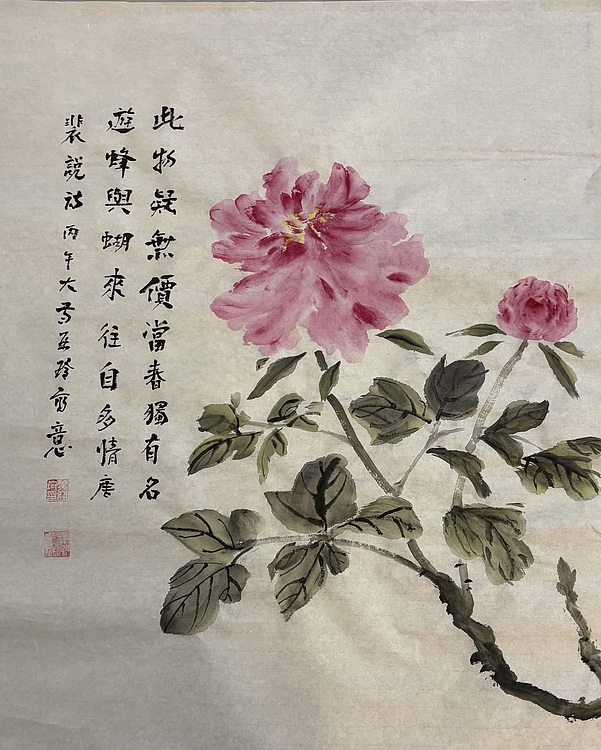 此物疑無價當春獨有名
遊蜂與蝴來往自多情唐
裴說诗丙午大寫意